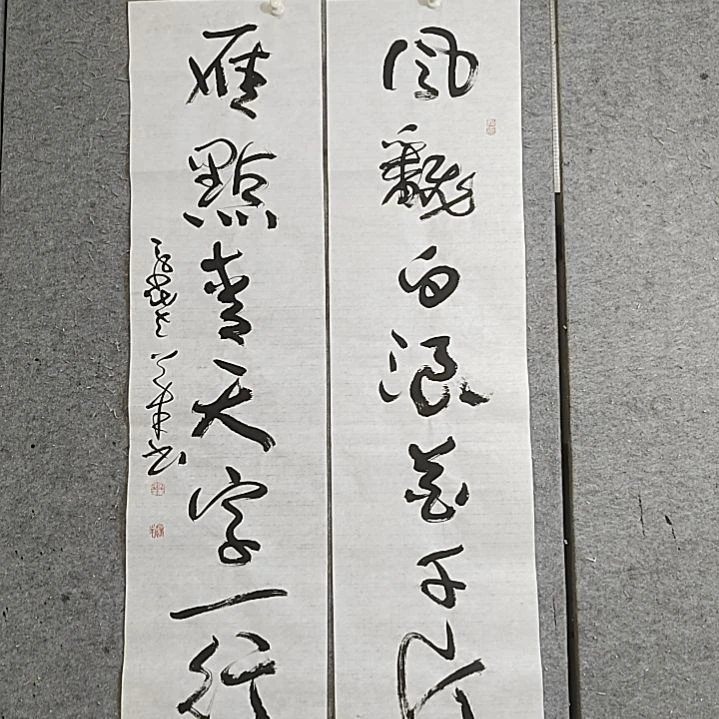 風飜白浪花千片
雁點青天字一行